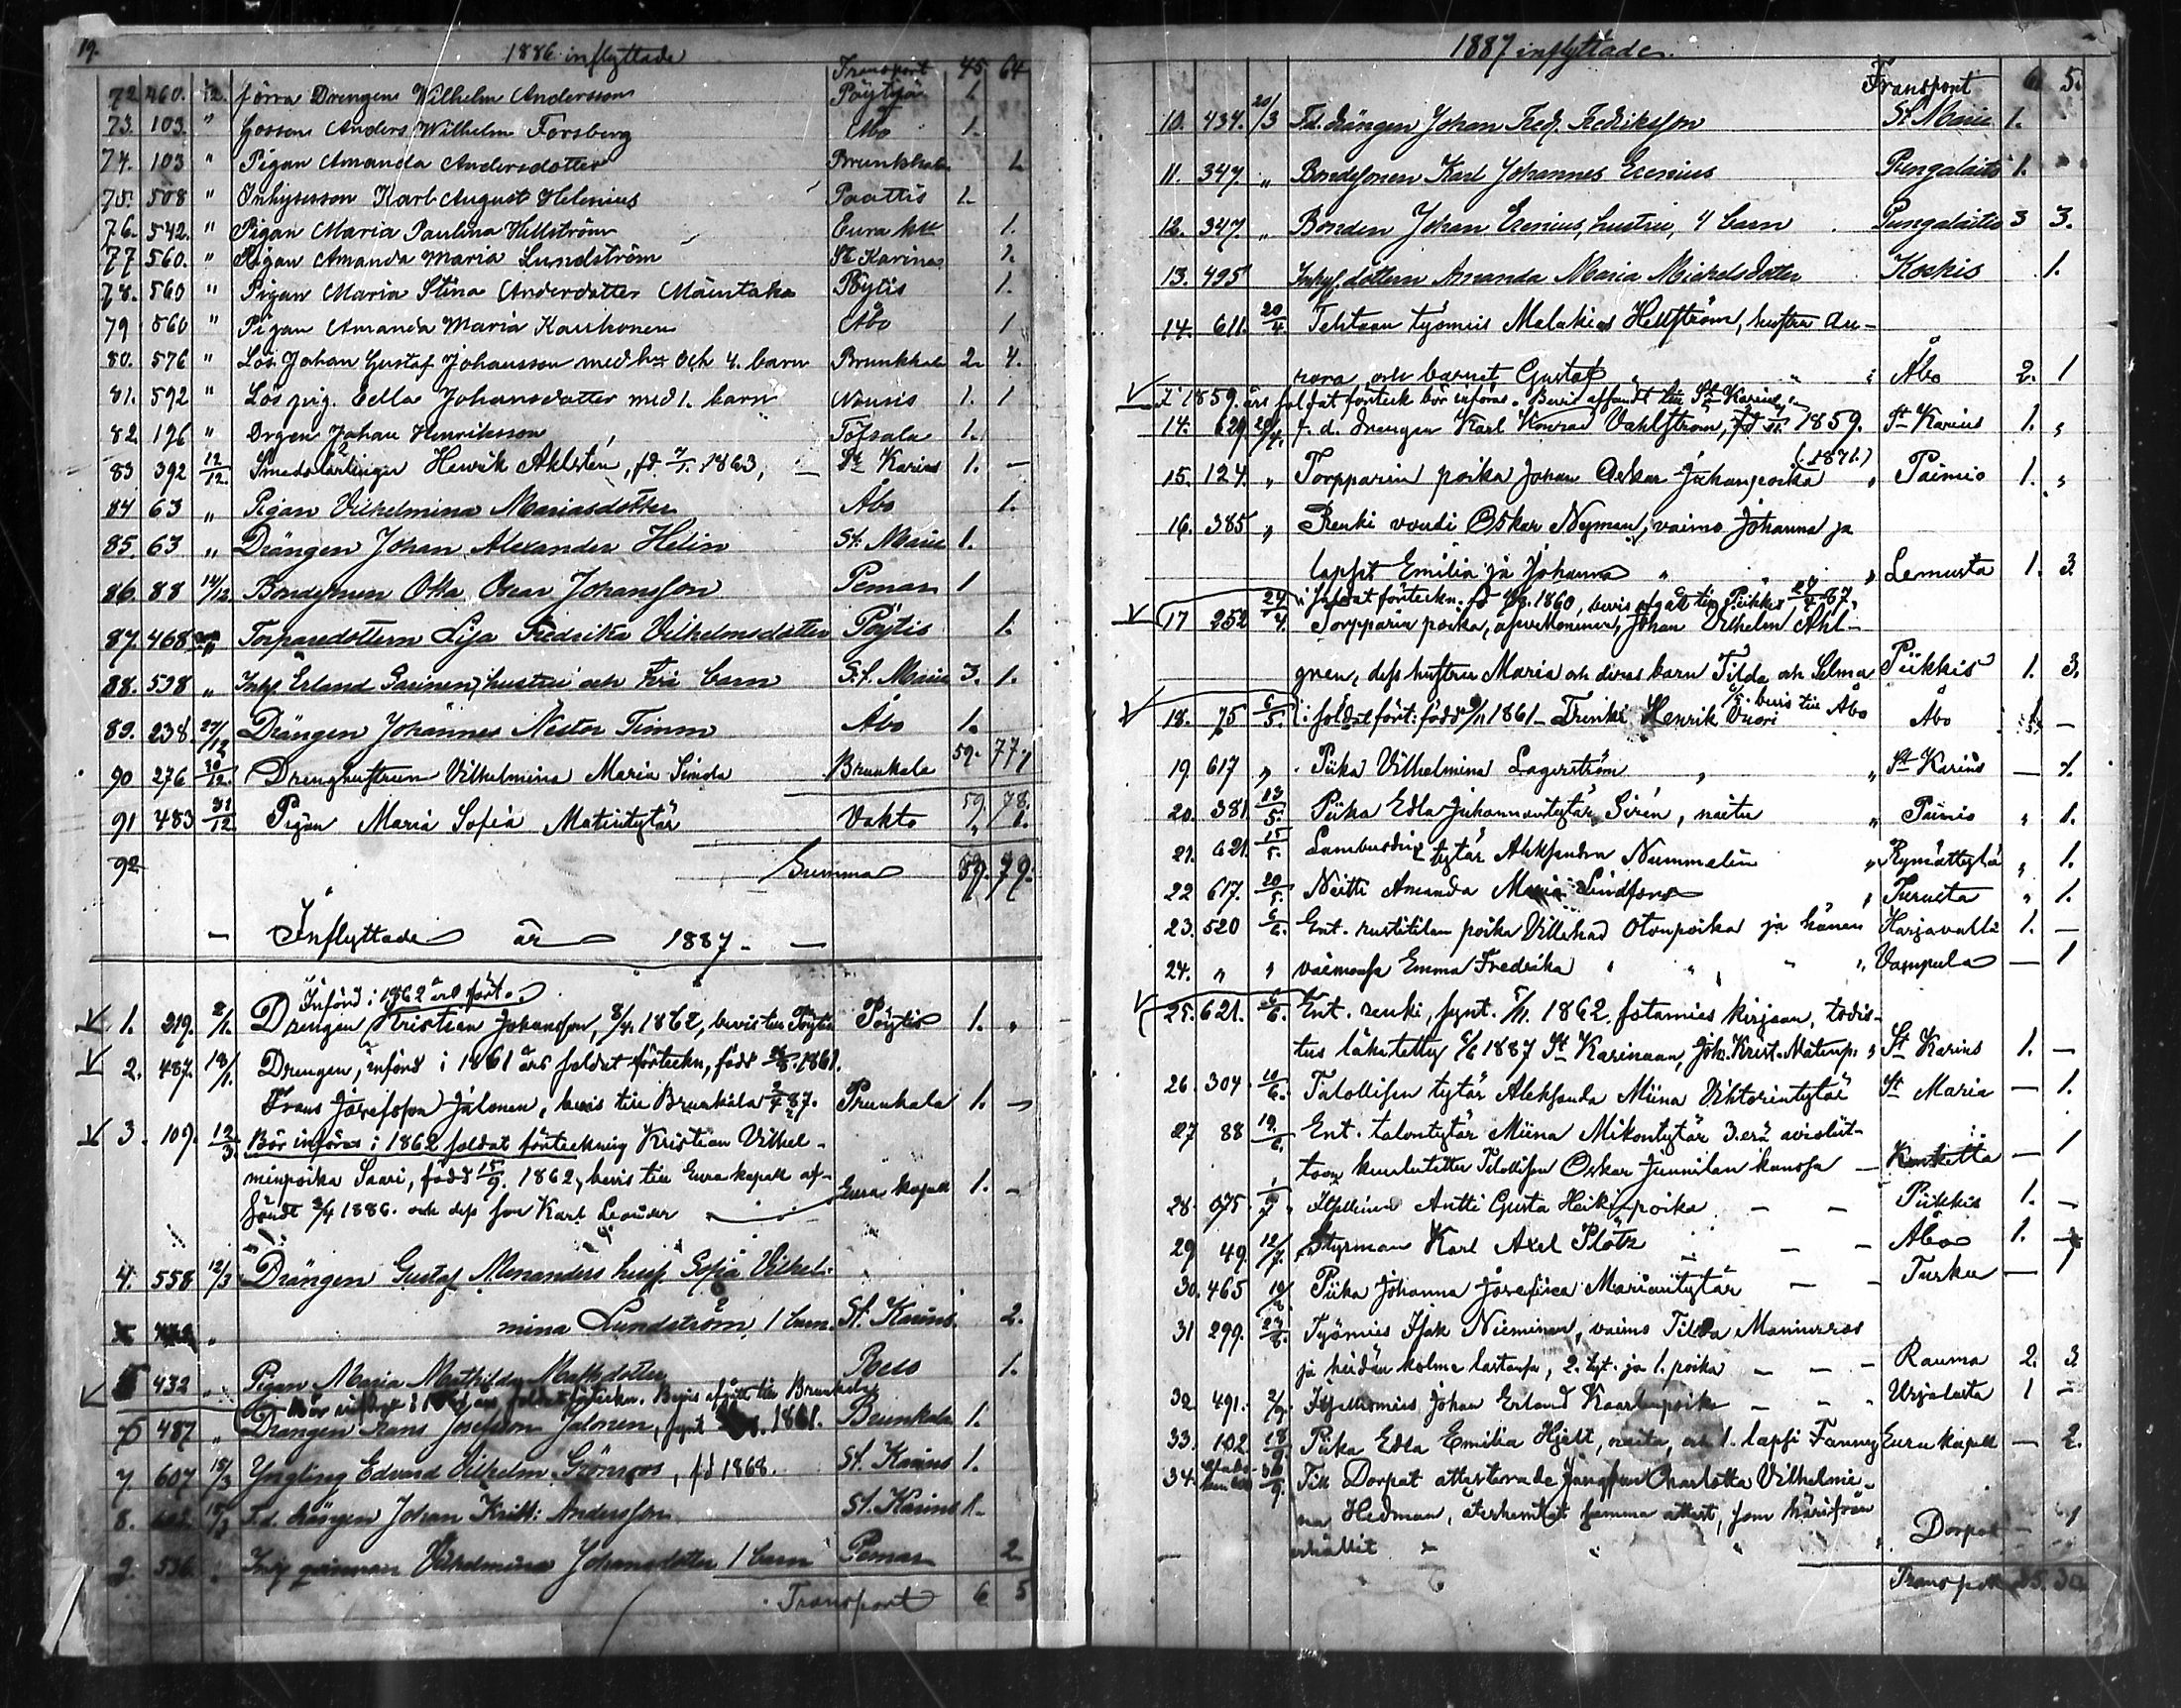 19.
1886 inflyttade
Transport 45 64
72 460. /12. förra Drengen Wilhelm Andersson Pöytyä 1.
73. 103. " Gossen Anders Wilhelm Forsberg Åbo 1.
74. 103 " Pigan Amanda Andersdotter Brunkkala 1.
75. 508 " Inhysesson Karl August Helenius Paattis 1.
76. 542. " Pigan Maria Paulina Hellström Eura kll 1.
77 560. " Pigan Amanda Maria Lundström St Karins 1.
78. 560 " Pigan Maria Stina Andersdotter Mäentaka Pöytis 1.
79 560 " Pigan Amanda Maria Kauhonen Åbo 1
80. 576 " Lös. Johan Gustaf Johansson med hu och 4. barn Brunkkala 2. 4.
81. 592 " Lös pig. Edla Johansdotter med 1. barn Nousis 1. 1
82 196 " Drgen Johan Henriksson Töfsala 1.
83 392 12/12. Smedslärlingen Henrik Ahlsten, fd 7/1. 1863, — St Karins 1. —
84 63 " Pigan Vilhelmina Mariasdotter Åbo 1.
85. 63 " Drängen Johan Alexander Helin St. Marie 1.
86. 88 14/12. Bondesonen Otto Oscar Johansson Pemar 1
87. 468 Torparedottern Lisa Fredrika Vilhelmsdotter Pöytis 1.
88. 538 " Inhys Erland Sarinen, hustru och två barn St. Marie 3. 1.
89. 238. 27/12 Drängen Johannes Nestor Timm Åbo 1.
90 276 30/12. Drenghustrun Vilhelmina Maria Simola Brunkala 59. 77.
91 483 31/12 Pigan Maria Sofia Matintytär Vakto 59. 78.
92 Summa 59. 79.
— Inflyttade år 1887 — —
Införd i 1862 års fört.
1. 219. 2/1. Drengen Kristian Johansson, 8/4 1862, bevis till Pöytis Pöytis 1. "
2. 487. 18/1. Drengen, införd i 1861 års soldat förteckn, född 1861.
Frans Josefsson Jalonen, bevis till Brunkala 87. Prunkala 1. —
3. 109. 12/3. Bör införas i 1862 soldat förteckning Kristian Vilhel-
minpoika Saari, född 15/9. 1862, bevis till Eura kapell af-
sändt 3/4 1886. och dess son Karl Leander Eura kapell 1. —
4. 558 12/3 Drängen Gustaf Menanders hust. Sofia Vilhel-
mina Lundström 1 barn. St. Karins. 2.
5 432 " Pigan Maria Mathilda Mattsdotter Reso 1.
Bör införas i soldat förteckn. Bevis afgått till Brunkala
6 487 " Drängen Frans Josefsson Jalonen, 1861. Brunkala 1.
7. 607 15/3 Yngling Edvard Vilhelm Grönroos, fd 1868. St. Karins 1.
8. F.d. drängen Johan Krist: Andersson St. Karins 1.
9. 536 " Inh. qvinnan Vilhelmina Johansdotter 1 barn Pemar 2
Transport 6 5
1887 inflyttade
Transport 6. 5.
10. 434. 20/3 F.d. drängen Johan Fred. Fredriksson St. Marie 1.
11. 347. " Bondesonen Karl Johannes Erenius Pungalaitio 1.
12. 347. " Bonden Johan Erenius, hustru, 4 barn Pungalaitio 3 3.
13. 495 Inhys. dottern Amanda Maria Michelsdotter Koskis 1.
14. 611. 20/4 Tehtaan työmies Malakias Hellström, hustru Au-
rora och barnet Gustaf " " " Åbo 2. 1
i 1859. års soldat förteck bör införas. Bevis afsändt till St Karins
14. 629 20/4. f. d. drengen Karl Konrad Vahlström, fd 1859. St Karins 1. "
15. 124. " Torpparin poika Johan Oskar Juhanpoika (1871.) " Paimio 1. "
16. 385 " Renki voudi Oskar Nyman, vaimo Johanna ja
lapset Emilia ja Johanna " " " Lemusta 1. 3.
i soldat förteckn. fd 1860, bevis afgått till Piikkis 24/4 87.
17 252 24/4. Torpparin poika, asevelvonen, Johan Vilhelm Ahl-
gren, dess hustru Maria och deras barn Tilda och Selma Piikkis 1. 3.
18. 75 6/5. i soldat fört: född 9/11 1861 — Trenki Henrik Vuori 6/5. bevis till Åbo Åbo 1 —
19. 617 " Piika Vilhelmina Lagerström " " St Karins — 1.
20. 381 13/5. Piika Edla Juhannantytär Sirén, naitu " Paimio " 1.
21. 621. 15/5. Lampuodin tytär Aleksandra Nummelin " Rymättylä " 1.
22 617. 20/5. Neitti Amanda Maria Lindfors " Turusta " 1.
23. 520 6/6. Ent. rustitilan poika Villehad Otonpoika ja hänen Harjavalla 1. —
24. " " vaimonsa Emma Fredrika " " " " Vampula — 1
25. 621. 6/6. Ent. renki, synt. 5/11. 1862. sotamies kirjaan, todis-
tus lähetetty 6/6 1887 St Karinaan, Joh. Krist. Matinp. " St Karins 1. —
26. 304 10/6. Talollisen tytär Aleksanda Miina Viktorintytär St Maria — 1.
27 88 19/6. Ent. talontytär Miina Mikontytär 3.erä avioliit-
toon kuulutettu Talollisen Oskar Junnilan kanssa — — 1
28. 075. 1/7. Itsellinen Antti Gusta Heikinpoika — — Piikkis 1. —
29 49. 12/7. Styrman Karl Axel Plötz — — Åbo 1. —
30. 465 19/8. Piika Johanna Josefiina Mariantytär — — Turku — 1
31 299. 27/8. Työmies Isak Nieminen, vaimo Tilda Mannerros
ja heidän kolme lastansa, 2. tyt. ja 1. poika — — — Rauma 2. 3.
32 491. 2/9. Itsellismies Johan Erland Kaarlenpoika — — " Urjalasta 1 —
33. 102. 18/9 Piika Edla Emilia Hjelt, naita, och 1. lapsi Fanny Eura kapell — 2.
34. /9. Till Dorpat attesterade Jungfrun Charlotta Vilhelmi-
na Hedman, återhemtat samma attest, som härifrån
erhållit " " " " Dorpat — 1
Transport 25. 30